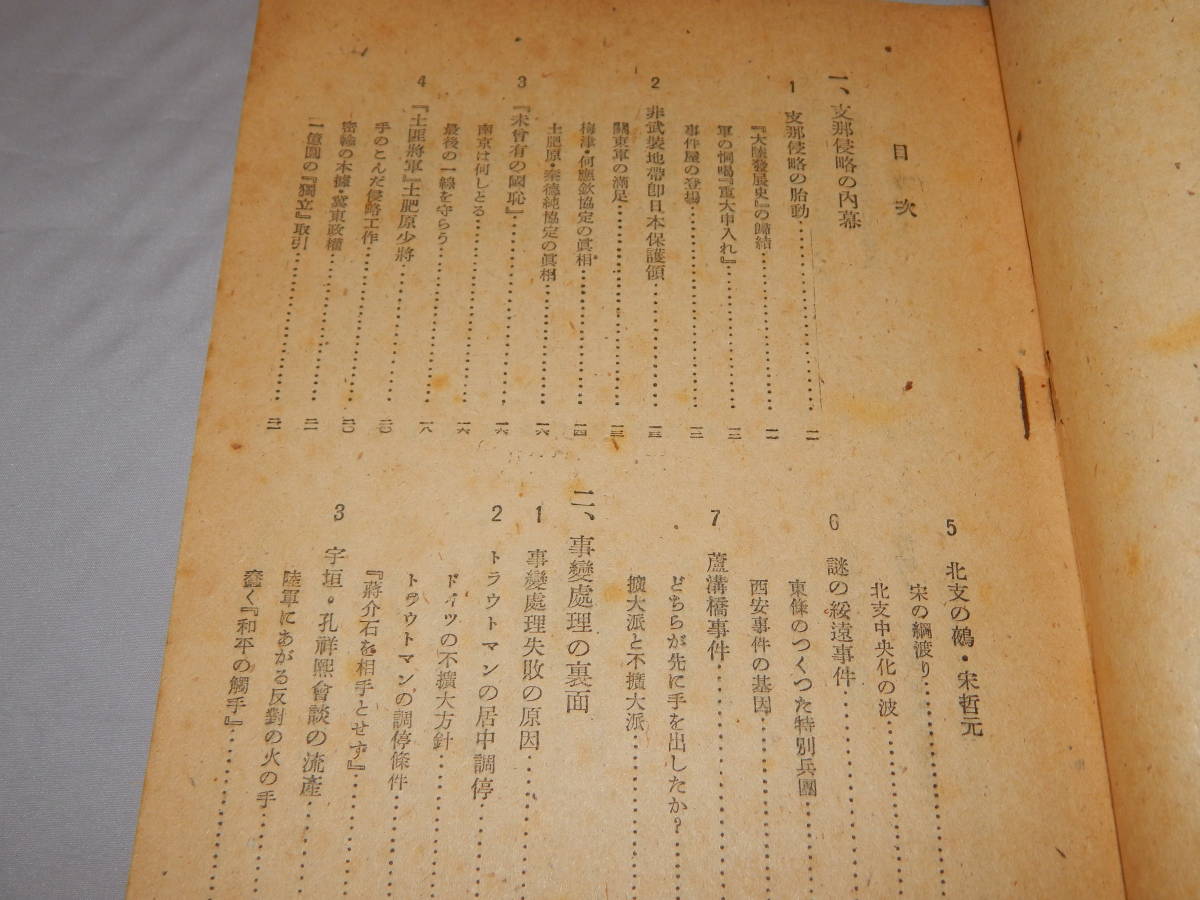 目次
一、支那侵略の內幕
1 支那侵略の胎動
『大陸發展史』の歸結
軍の恫喝『重大申入れ』
事件屋の登場
2 非武裝地帶卽日本保護領
關東軍の滿足
梅津・何應欽協定の眞相 一四
土肥原・秦德純協定の眞相 一六
3 『未曾有の國恥』 一六
南京は何しとる 一六
最後の一線を守らう 一八
4 『土匪將軍』土肥原少將 二〇
手のこんだ侵略工作 二〇
密輸の本據・冀東政權
一億圓の『獨立』取引
5 北支の鵺・宋哲元
宋の綱渡り
北支中央化の波
6 謎の綏遠事件
東條のつくつた特別兵團
西安事件の基因
7 蘆溝橋事件
どちらが先に手を出したか?
擴大派と不擴大派
二、事變處理の裏面
1 事變處理失敗の原因
2 トラウトマンの居中調停
ドイツの不擴大方針
トラウトマンの調停條件
『蔣介石を相手とせず』
3 宇垣・孔祥熙會談の流產
陸軍にあがる反對の火の手
蠢く『和平の觸手』